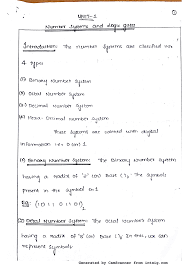 UNIT-1
Number Systems and Logic gates
Introduction: The Number Systems are classified into
4 types
(1) Binary Number System
(2) Octal Number System
(3) Decimal Number System
(4) Hexa-Decimal Number System
These Systems are carried with digital
information i.e 0 (or) 1
(1) Binary Number System: The Binary Number System
having a Radix of '2' (or) base ( )2. The Symbols
present in the Symbol 0 (or) 1
Eg: (1011 01)2
(2) Octal Number System: The Octal Number System
having a radix of '8' (or) base ( )8. In this, we can
represent Symbols
Generated by CamScanner from intsig.com